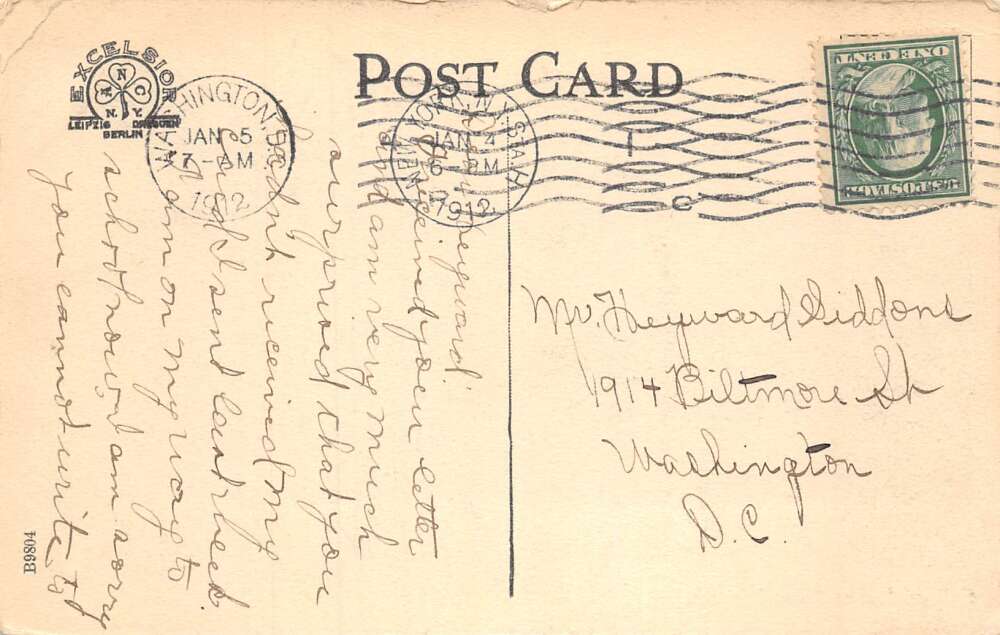 POST CARD
EXCELSIOR
ANC
N.Y.
LEIPZIG DRESDEN
BERLIN
WASHINGTON, D.C.
JAN 5
7-AM
1912
NEW YORK, N.Y. STA. H
JAN 4
6 PM
1912
1
C
U.S. POSTAGE
ONE CENT
Heyward
received your letter
and am very much
surprised that you
hadn't received my
card I sent last week.
I am on my way to
school now, I am sorry
you cannot write to
Mr. Heyward Giddons
1914 Biltmore St
Washington
D.C.
B9804